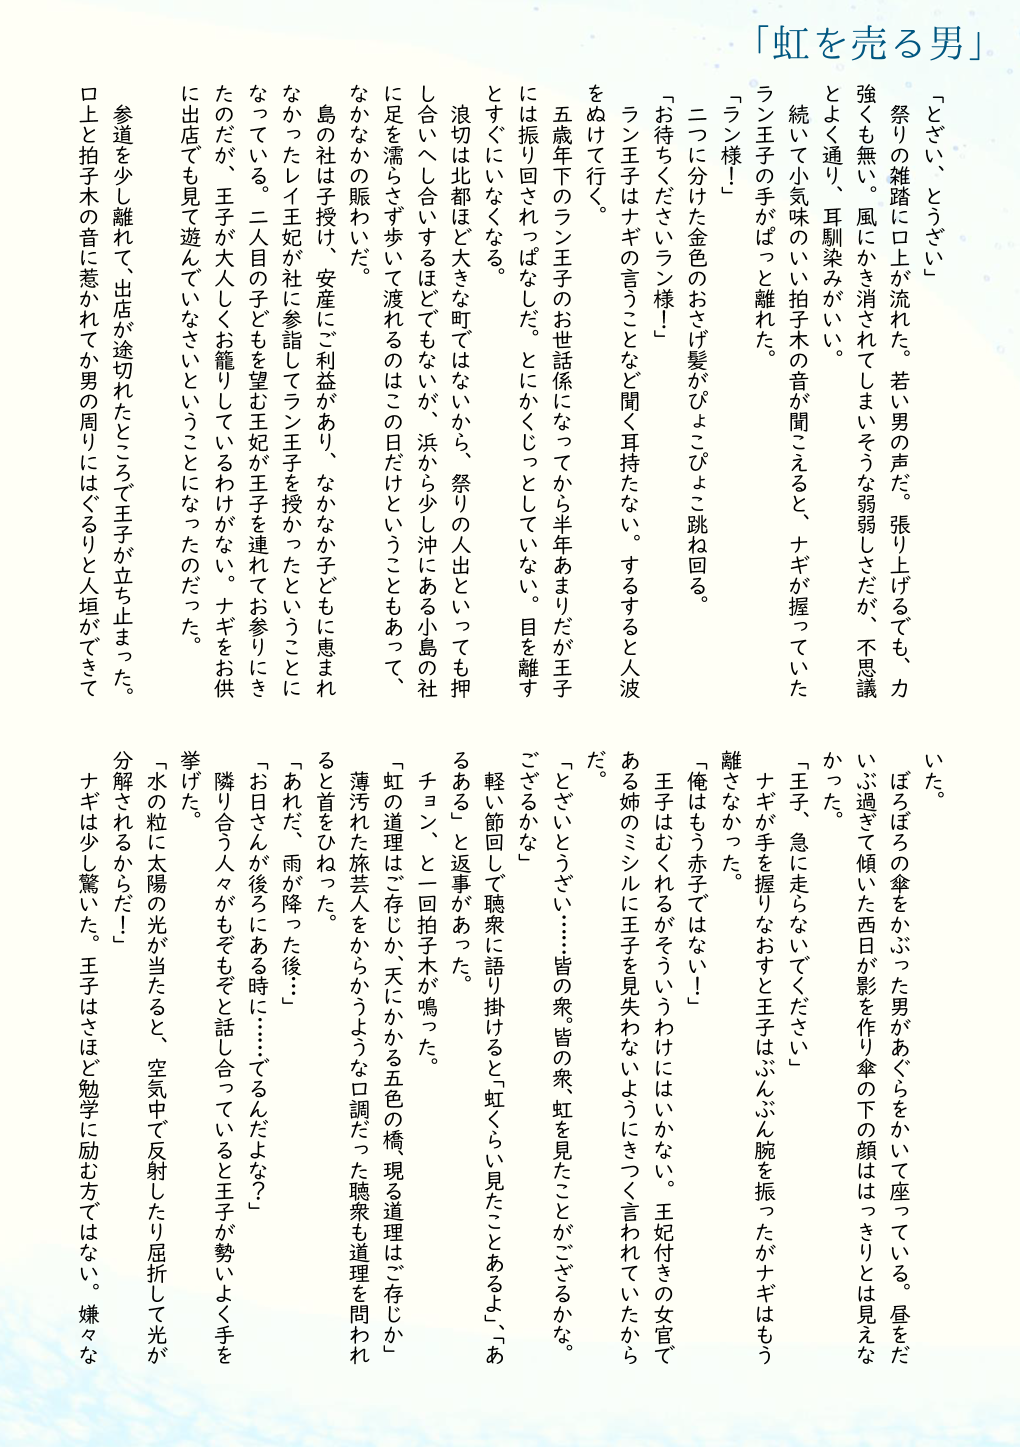 「虹を売る男」
「とざい、とうざい」
　祭りの雑踏に口上が流れた。若い男の声だ。張り上げるでも、力
強くも無い。風にかき消されてしまいそうな弱弱しさだが、不思議
とよく通り、耳馴染みがいい。
　続いて小気味のいい拍子木の音が聞こえると、ナギが握っていた
ラン王子の手がぱっと離れた。
「ラン様！」
　二つに分けた金色のおさげ髪がぴょこぴょこ跳ね回る。
「お待ちくださいラン様！」
　ラン王子はナギの言うことなど聞く耳持たない。するすると人波
をぬけて行く。
　五歳年下のラン王子のお世話係になってから半年あまりだが王子
には振り回されっぱなしだ。とにかくじっとしていない。目を離す
とすぐにいなくなる。
　浪切は北都ほど大きな町ではないから、祭りの人出といっても押
し合いへし合いするほどでもないが、浜から少し沖にある小島の社
に足を濡らさず歩いて渡れるのはこの日だけということもあって、
なかなかの賑わいだ。
　島の社は子授け、安産にご利益があり、なかなか子どもに恵まれ
なかったレイ王妃が社に参詣してラン王子を授かったということに
なっている。二人目の子どもを望む王妃が王子を連れてお参りにき
たのだが、王子が大人しくお籠りしているわけがない。ナギをお供
に出店でも見て遊んでいなさいということになったのだった。
　参道を少し離れて、出店が途切れたところで王子が立ち止まった。
口上と拍子木の音に惹かれてか男の周りにはぐるりと人垣ができて
いた。
　ぼろぼろの傘をかぶった男があぐらをかいて座っている。昼をだ
いぶ過ぎて傾いた西日が影を作り傘の下の顔ははっきりとは見えな
かった。
「王子、急に走らないでください」
　ナギが手を握りなおすと王子はぶんぶん腕を振ったがナギはもう
離さなかった。
「俺はもう赤子ではない！」
　王子はむくれるがそういうわけにはいかない。王妃付きの女官で
ある姉のミシルに王子を見失わないようにきつく言われていたから
だ。
「とざいとうざい……皆の衆。皆の衆、虹を見たことがござるかな。
ござるかな」
　軽い節回しで聴衆に語り掛けると「虹くらい見たことあるよ」、「あ
るある」と返事があった。
　チョン、と一回拍子木が鳴った。
「虹の道理はご存じか、天にかかる五色の橋、現る道理はご存じか」
　薄汚れた旅芸人をからかうような口調だった聴衆も道理を問われ
ると首をひねった。
「あれだ、雨が降った後…」
「お日さんが後ろにある時に……でるんだよな？」
　隣り合う人々がもぞもぞと話し合っていると王子が勢いよく手を
挙げた。
「水の粒に太陽の光が当たると、空気中で反射したり屈折して光が
分解されるからだ！」
　ナギは少し驚いた。王子はさほど勉学に励む方ではない。嫌々な